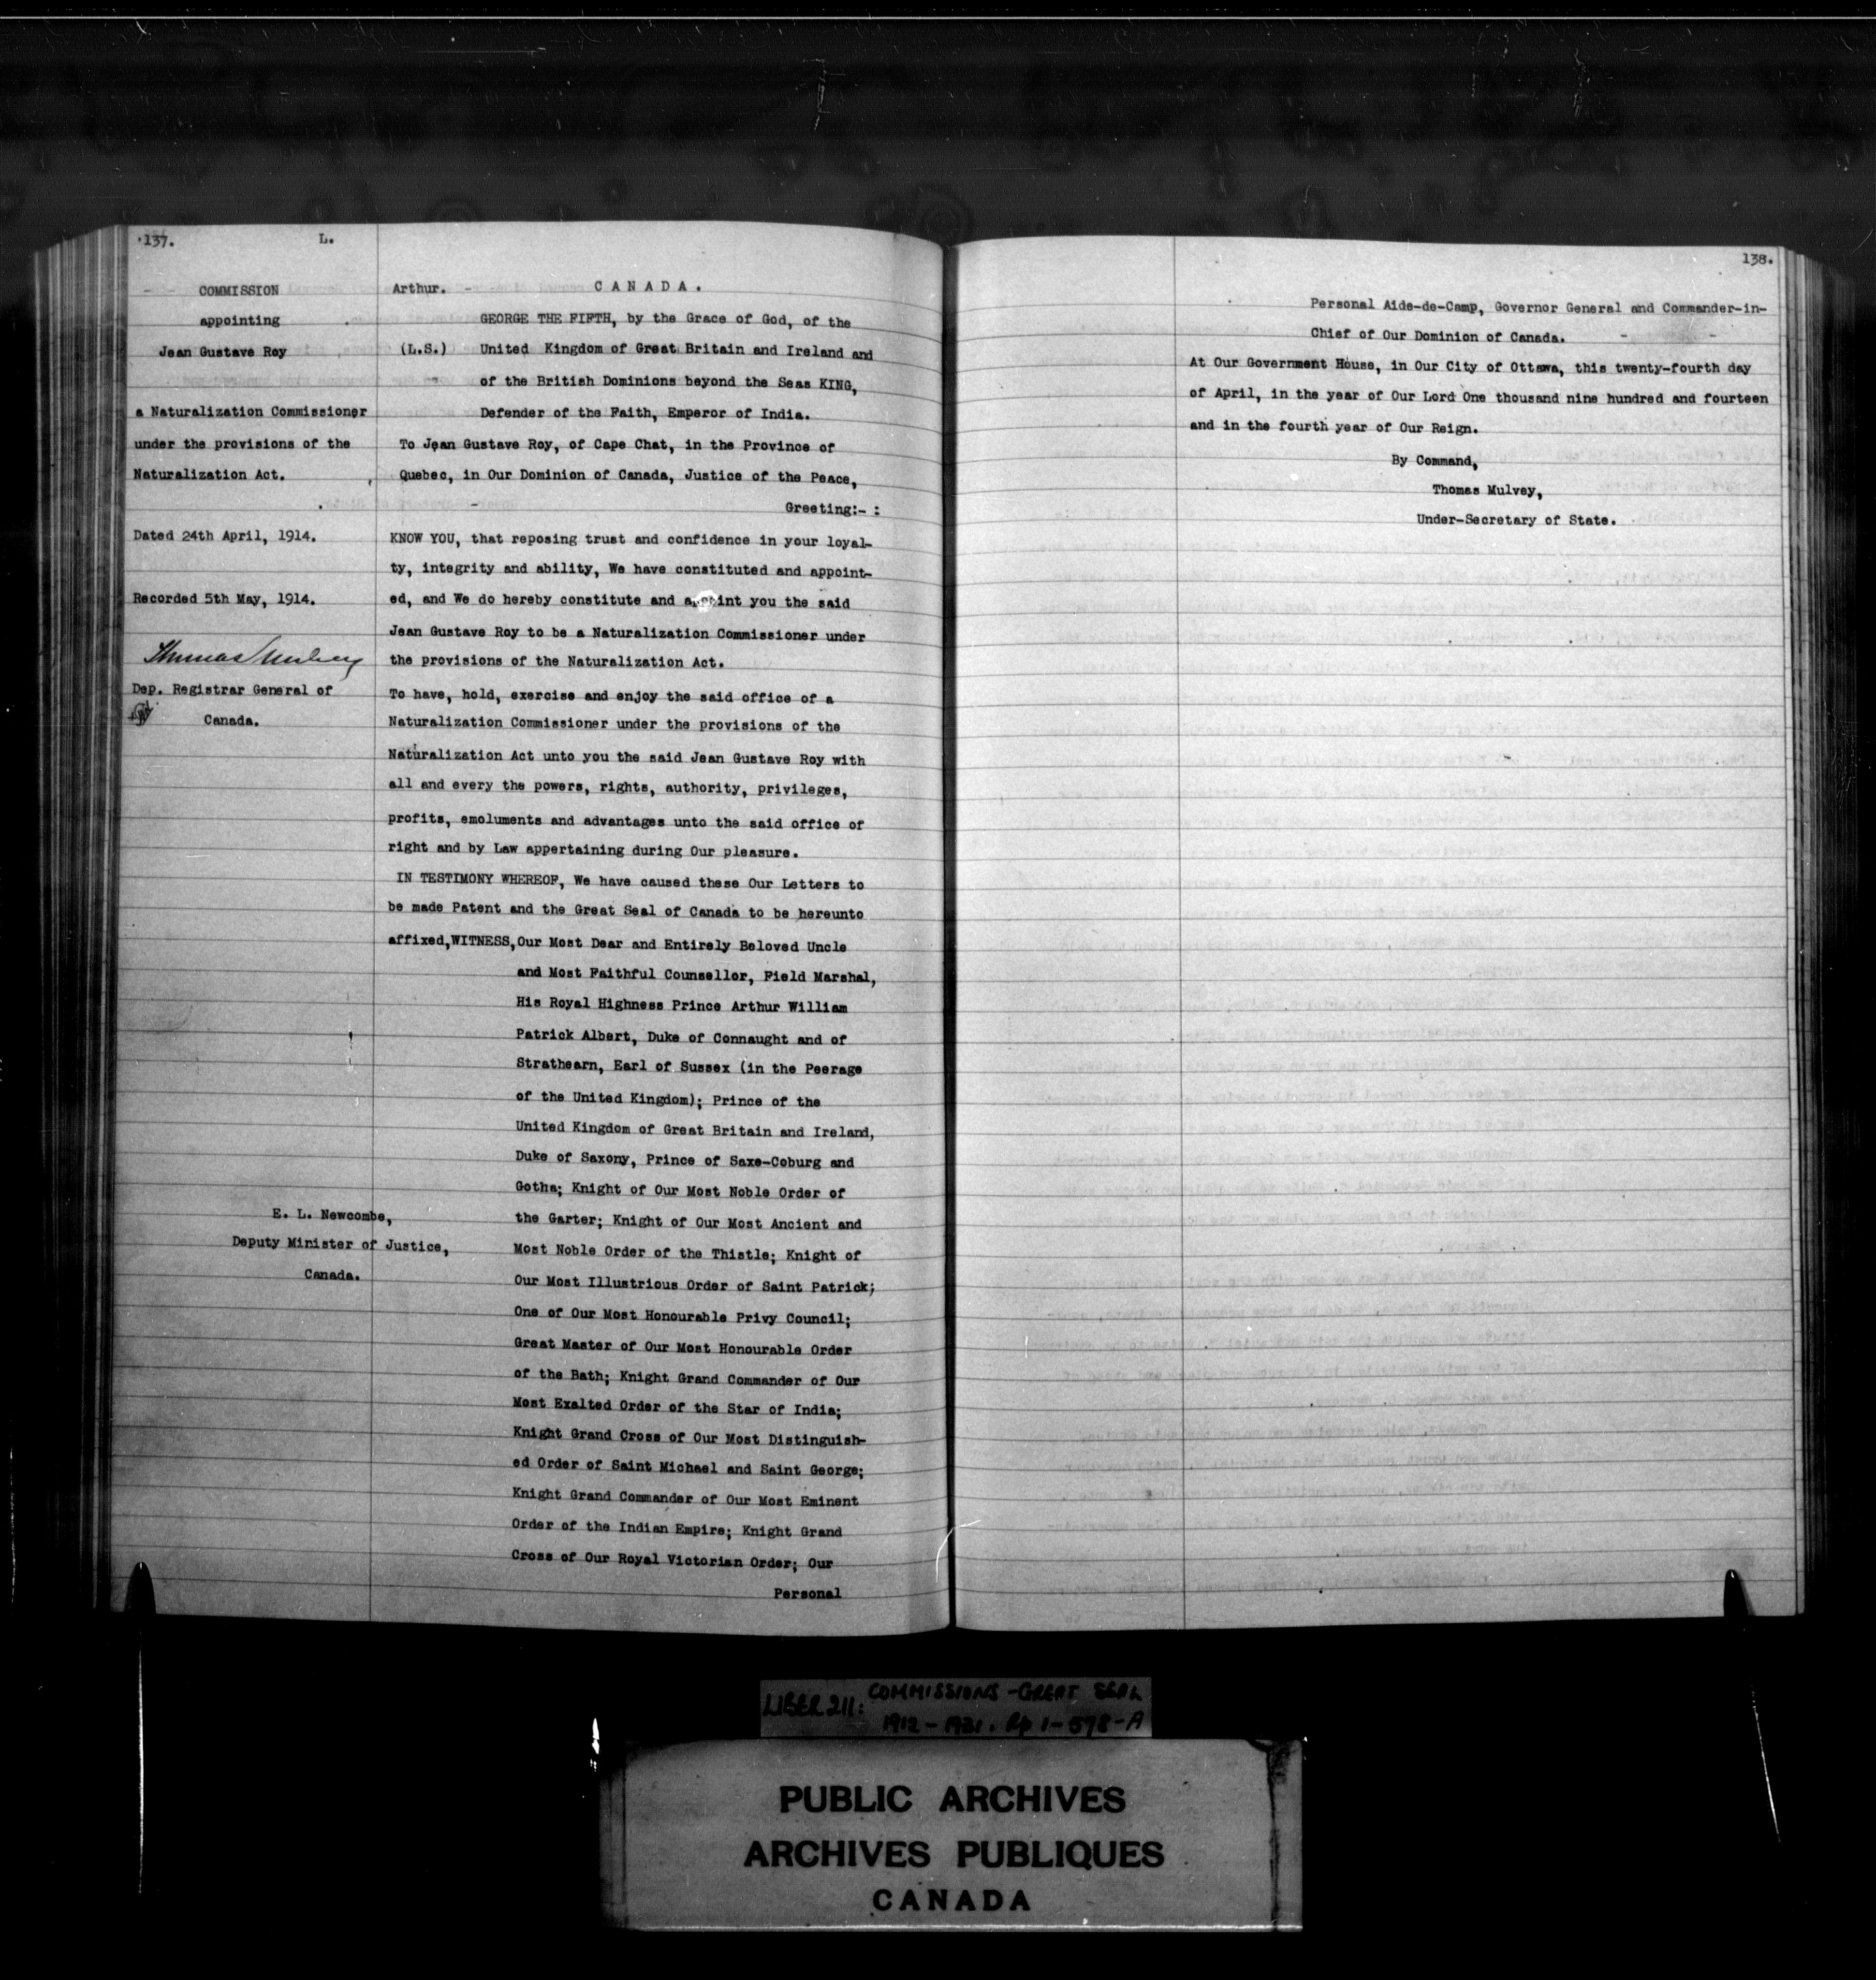 137.
L.
COMMISSION
appointing
Jean Gustave Roy
a Naturalization Commissioner
under the provisions of the
Naturalization Act.
Dated 24th April, 1914.
Recorded 5th May, 1914.
Thomas Mulvey
Dep. Registrar General of
Canada.
E. L. Newcombe,
Deputy Minister of Justice,
Canada.
Arthur. - CANADA.
GEORGE THE FIFTH, by the Grace of God, of the
(L.S.) United Kingdom of Great Britain and Ireland and
of the British Dominions beyond the Seas KING,
Defender of the Faith, Emperor of India.
To Jean Gustave Roy, of Cape Chat, in the Province of
Quebec, in Our Dominion of Canada, Justice of the Peace,
Greeting:- :
KNOW YOU, that reposing trust and confidence in your loyal-
ty, integrity and ability, We have constituted and appoint-
ed, and We do hereby constitute and appoint you the said
Jean Gustave Roy to be a Naturalization Commissioner under
the provisions of the Naturalization Act.
To have, hold, exercise and enjoy the said office of a
Naturalization Commissioner under the provisions of the
Naturalization Act unto you the said Jean Gustave Roy with
all and every the powers, rights, authority, privileges,
profits, emoluments and advantages unto the said office of
right and by Law appertaining during Our pleasure.
IN TESTIMONY WHEREOF, We have caused these Our Letters to
be made Patent and the Great Seal of Canada to be hereunto
affixed,WITNESS,Our Most Dear and Entirely Beloved Uncle
and Most Faithful Counsellor, Field Marshal,
His Royal Highness Prince Arthur William
Patrick Albert, Duke of Connaught and of
Strathearn, Earl of Sussex (in the Peerage
of the United Kingdom); Prince of the
United Kingdom of Great Britain and Ireland,
Duke of Saxony, Prince of Saxe-Coburg and
Gotha; Knight of Our Most Noble Order of
the Garter; Knight of Our Most Ancient and
Most Noble Order of the Thistle; Knight of
Our Most Illustrious Order of Saint Patrick;
One of Our Most Honourable Privy Council;
Great Master of Our Most Honourable Order
of the Bath; Knight Grand Commander of Our
Most Exalted Order of the Star of India;
Knight Grand Cross of Our Most Distinguish-
ed Order of Saint Michael and Saint George;
Knight Grand Commander of Our Most Eminent
Order of the Indian Empire; Knight Grand
Cross of Our Royal Victorian Order; Our
Personal
138.
Personal Aide-de-Camp, Governor General and Commander-in-
Chief of Our Dominion of Canada.
At Our Government House, in Our City of Ottawa, this twenty-fourth day
of April, in the year of Our Lord One thousand nine hundred and fourteen
and in the fourth year of Our Reign.
By Command,
Thomas Mulvey,
Under-Secretary of State.
LIBER 211: COMMISSIONS - GREAT SEAL
1912 - 1921. Pp 1-578-A
PUBLIC ARCHIVES
ARCHIVES PUBLIQUES
CANADA